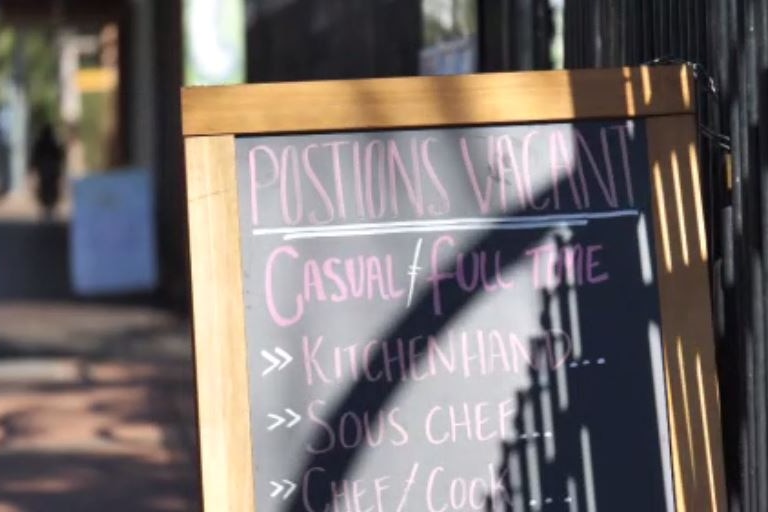 POSTIONS VACANT
CASUAL/FULL TIME
>> KITCHENHAND...
>> SOUS CHEF...
>> CHEF/COOK ...